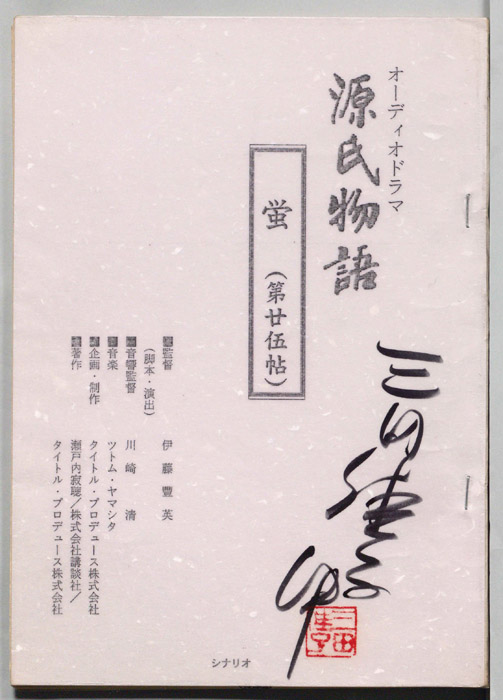 オーディオドラマ
源氏物語
蛍 (第廿伍帖)
監督 伊藤豊英
(脚本・演出)
音響監督 川崎 清
音楽 ツトム・ヤマシタ
企画・制作 タイトル・プロデュース株式会社
著作 瀬戸内寂聴/株式会社講談社/
タイトル・プロデュース株式会社
シナリオ